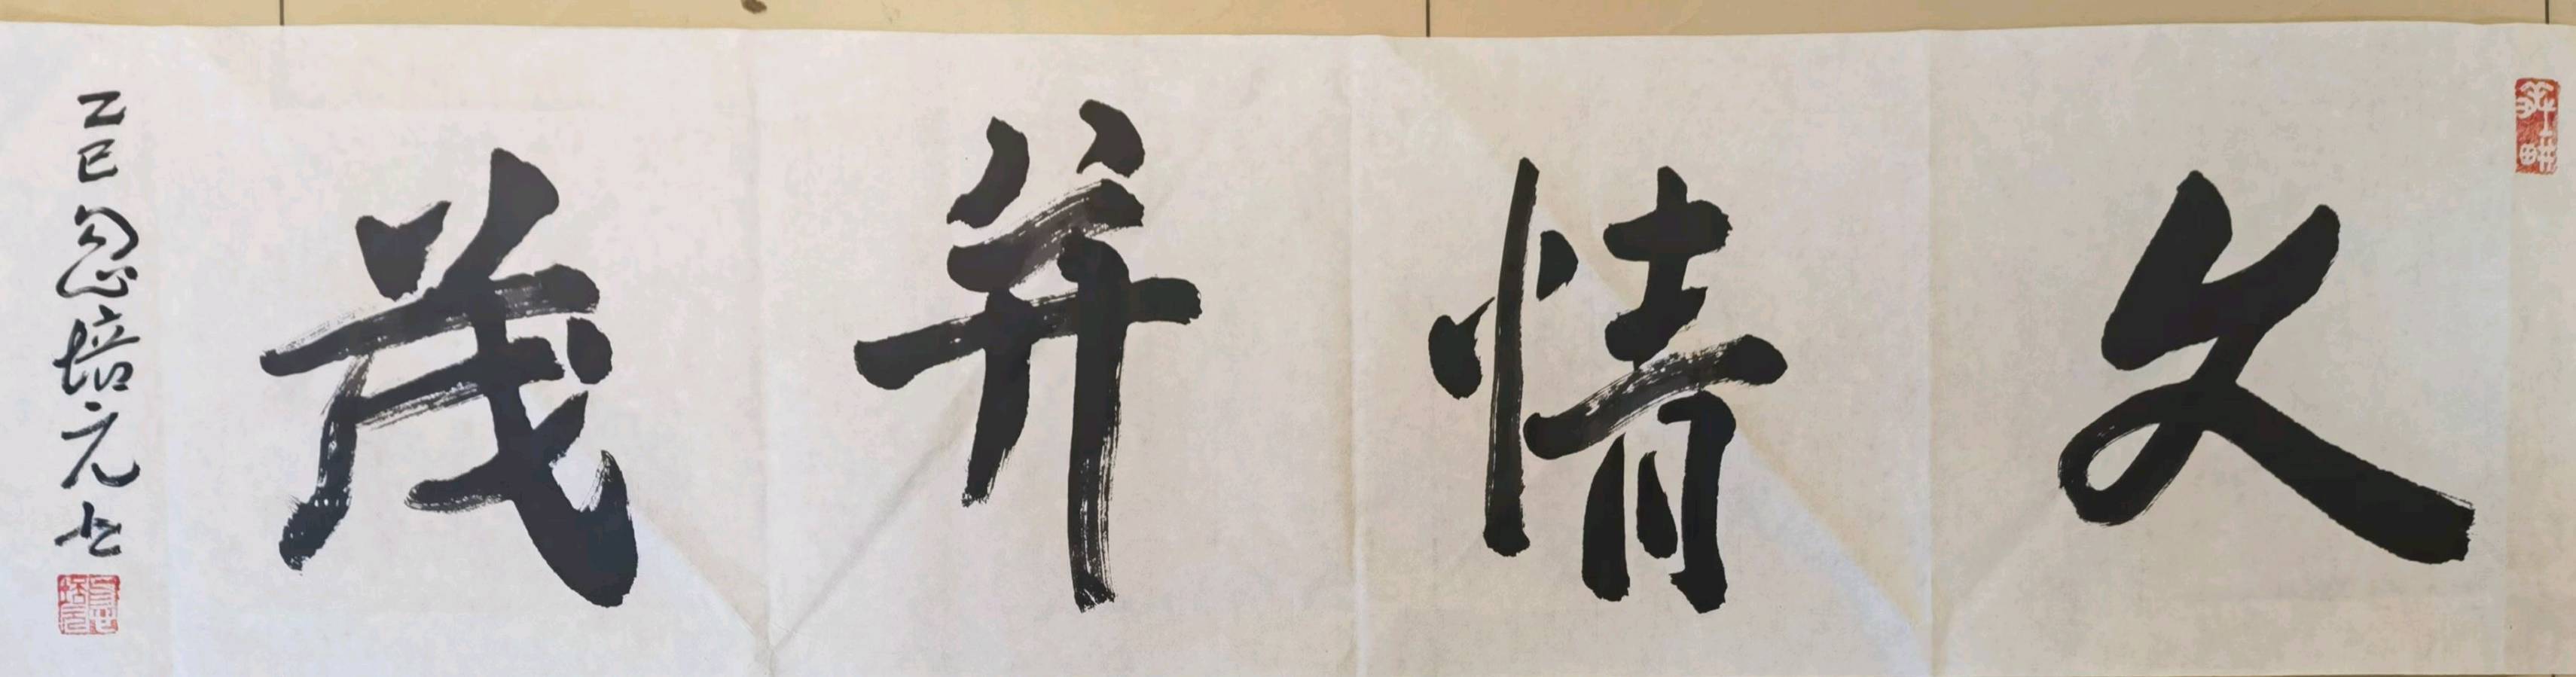 文情并茂
乙巳忽培元书